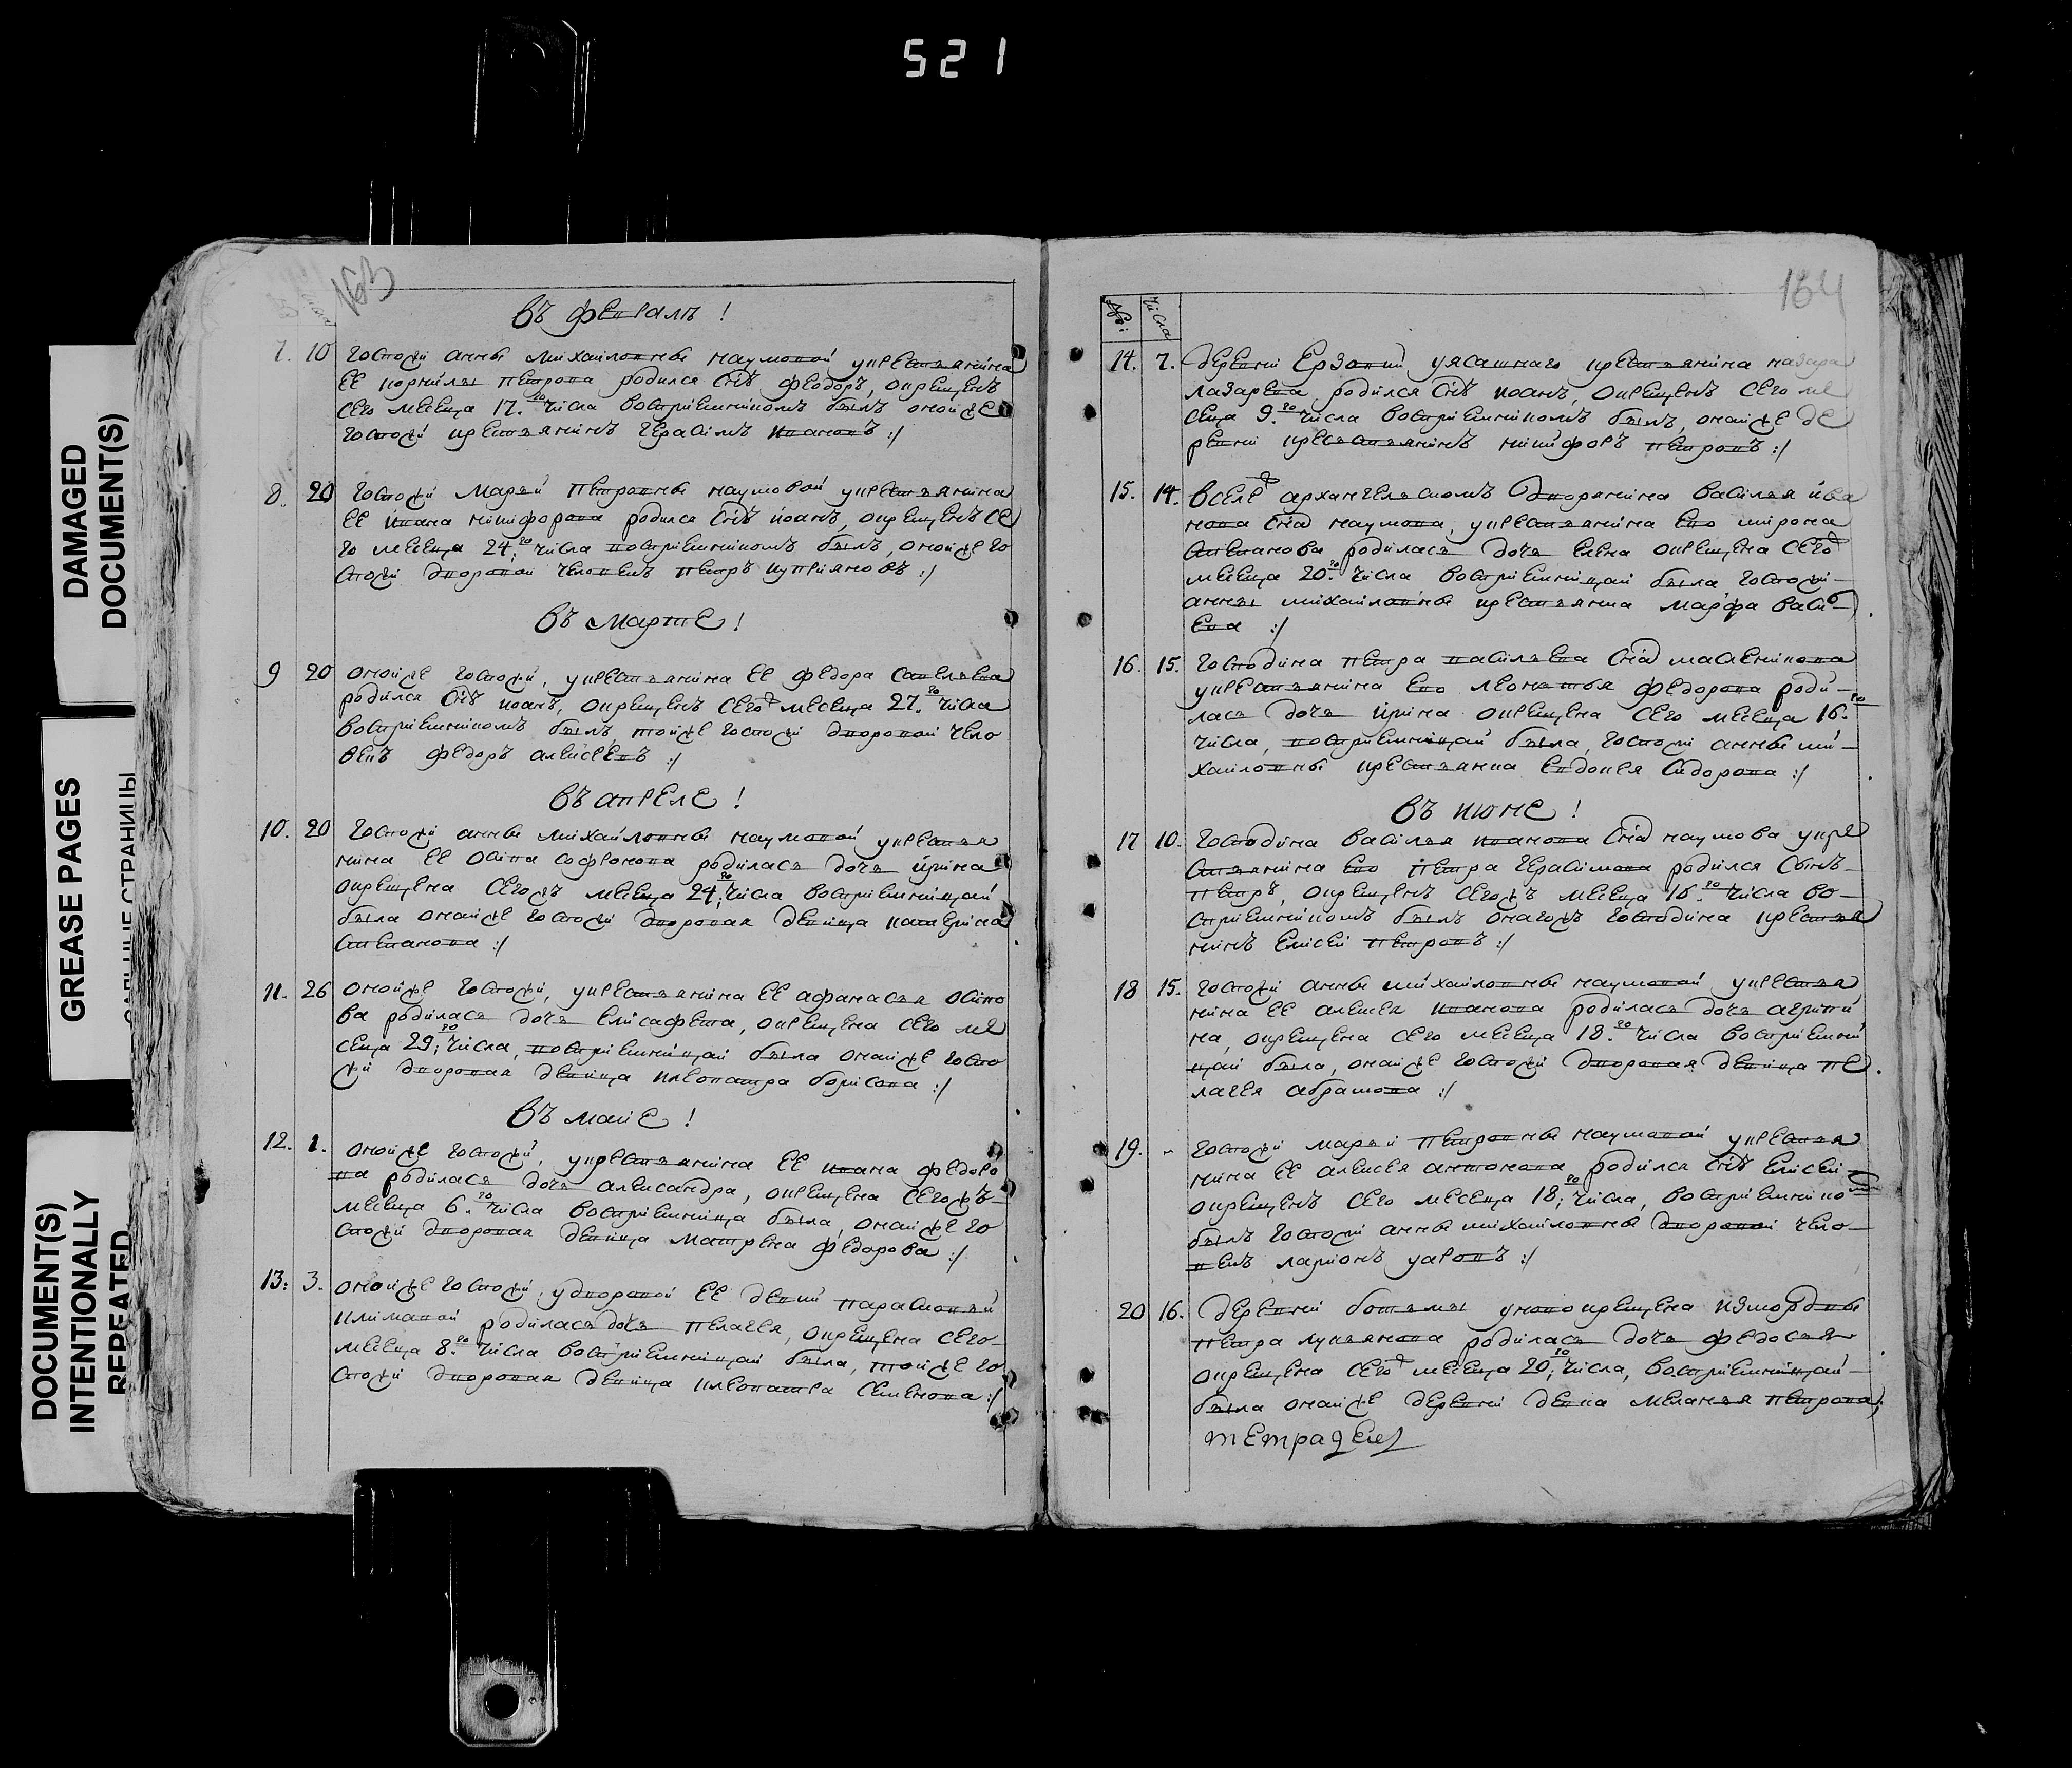 521
DAMAGED
DOCUMENT(S)
GREASE PAGES
DOCUMENT(S)
INTENTIONALLY
REPEATED
163
въ февралѣ!
7. 10 госпожи анны михаиловны наумовой укрестьянина
ее корнилы петрова родился снъ феодоръ, окрещенъ
сего месеца 17.го числа восприемникомъ былъ оной же
госпожи крестьянинъ герасимъ ивановъ :/
8. 20 госпожи Марьи петровны наумовой укрестьянина
ее ивана никифорова родился снъ иоанъ, окрещенъ се
го месеца 24.го числа восприемникомъ былъ, оной же го
спожи дворовои человекъ петръ куприяновъ :/
въ Марте!
9 20 оной же госпожи, укрестьянина ее федора савельева
родился снъ иоанъ, окрещенъ сего месеца 27.го числа
восприемникомъ былъ, той же госпожи дворовои чело
векъ федоръ алексеевъ :/
въ апреле!
10. 20 госпожи анны михаиловны наумовой укрестья
нина ее осипа софронова родилась дочь ирина
окрещена сегожъ месеца 24.го числа восприемницаи
была оной же госпожи дворовая девица катерина
степанова :/
11. 26 оной же госпожи, укрестьянина ее афанасья осипо
ва родилась дочь елисафета, окрещена сего ме
сеца 29.го числа, восприемницаи была оной же госпо
жи дворовая девица клеопатра борисова :/
въ маие!
12. 1. оной же госпожи, укрестьянина ее ивана федоро
ва родилась дочь александра, окрещена сегожъ
месеца 6.го числа восприемница была, оной же го
спожи дворовая девица матрена федорова :/
13: 3. оной же госпожи, удворовой ее девки парасковьи
климовой родилась дочь пелагея, окрещена сего
месеца 8.го числа восприемницаи была, той же го
спожи дворовая девица клеопатра семенова :/
164
№: числа
14. 7. деревни Ерзовки уясашнаго крестьянина назара
лазарева родился снъ иоанъ, окрещенъ сего ме
сеца 9.го числа восприемникомъ былъ, оной же де
ревни крестьянинъ никифоръ петровъ :/
15. 14. вселе архангельскомъ дворянина василья ива
нова сна наумова, укрестьянина ево мирона
степанова родилась дочь елена окрещена сего
месеца 20.го числа восприемницаи была, госпожи
анны михаиловны крестьянка марфа василь
ева :/
16. 15. господина петра васильева сна масленикова
укрестьянина ево леонтья федорова роди
лась дочь ирина окрещена сего месеца 16.го
числа, восприемницаи была, госпожи анны ми
хаиловны крестьянка евдокея сидорова :/
въ июне!
17 10. господина василья иванова сна наумова укре
стьянина ево петра герасимова родился сынъ
петръ, окрещенъ сегожъ месеца 16.го числа во
сприемникомъ былъ оногожъ господина крестья
нинъ елисей петровъ :/
18 15. госпожи анны михаиловны наумовой укрестья
нина ее алексея иванова родилась дочь агрипи
на, окрещена сего месеца 18.го числа восприемни
цаи была, оной же госпожи дворовая девица пе
лагея абрамова :/
19. госпожи марьи петровны наумовой укрестья
нина ее алексея антонова родился снъ елисей
окрещенъ сего месеца 18.го числа, восприемнико
былъ госпожи анны михаиловны дворовой чело
векъ ларионъ уаровъ :/
20 16. деревни ботьмы уновокрещена изморѳвы
петра лукьянова родилась дочь федосья
окрещена сего месеца 20.го числа, восприемницаи
была оной же деревни девка меланья петрова;